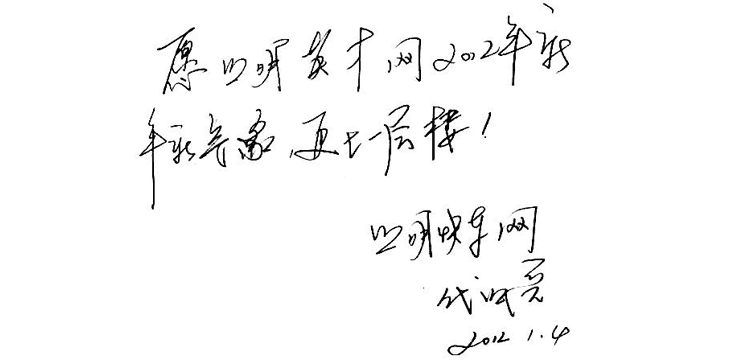 愿照明英才网2012年新
年新气象,更上一层楼!
照明快车网
2012.1.4